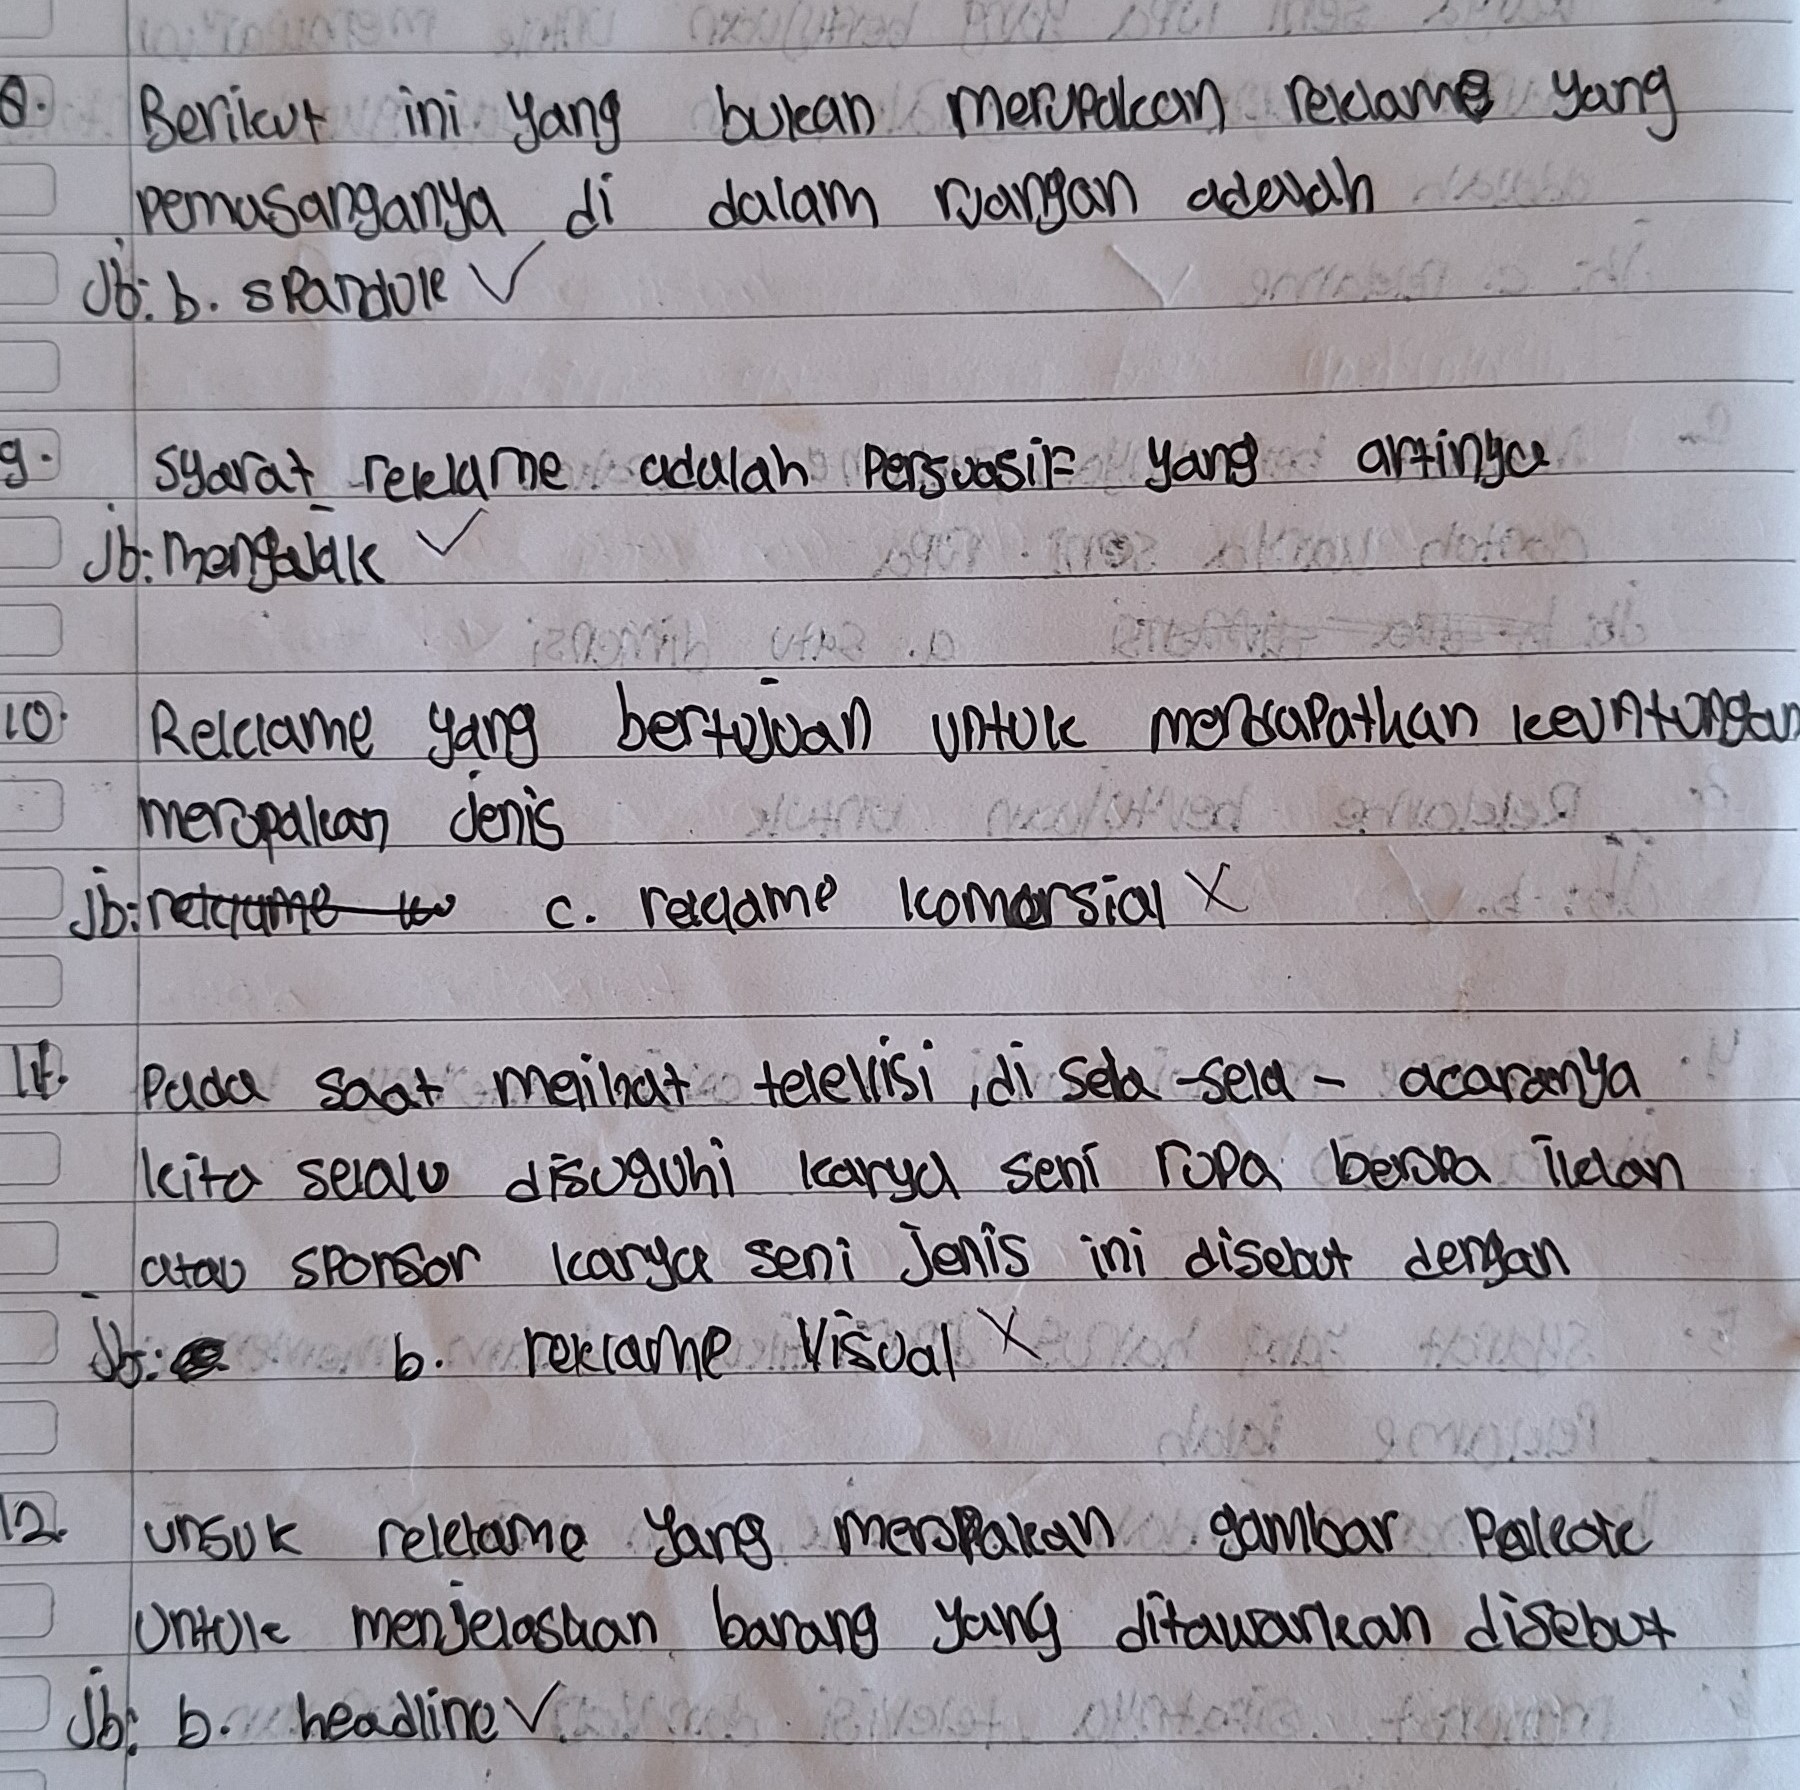 8. Berikut ini yang bukan merupakan reklame yang
pemasanganya di dalam ruangan adalah
Jb: b. spanduk ✓
9. Syarat reklame adalah Persuasif yang artinya
Jb: Mengajak ✓
10. Reklame yang bertujuan untuk mendapatkan keuntungan
merupakan jenis
Jb: reklame c. reklame komersial X
11. Pada saat melihat televisi, di sela-sela - acaranya
kita selalu disuguhi karya seni rupa berupa iklan
atau sponsor karya seni jenis ini disebut dengan
Jb: b. reklame Visual X
12. unsuk reklame yang merupakan gambar Pokok
Untuk menjelaskan barang yang ditawarkan disebut
Jb: b. headline ✓